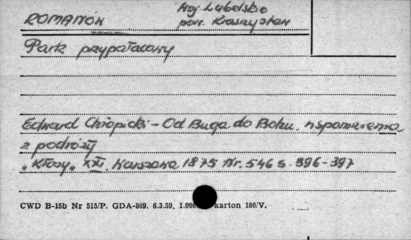 ROMANÓW Woj. Lubelskie
pow. Krasnystaw
Park przypałacowy
Edward Chłopicki - Od Buga do Bohu, wspomnienia
z podróży
"Kłosy" XXI. Warszawa 1875 Nr. 546 s. 396-397
CWD B-15b Nr 515/P. GDA-809. 6.3.59. 1.000 karton 180/V.